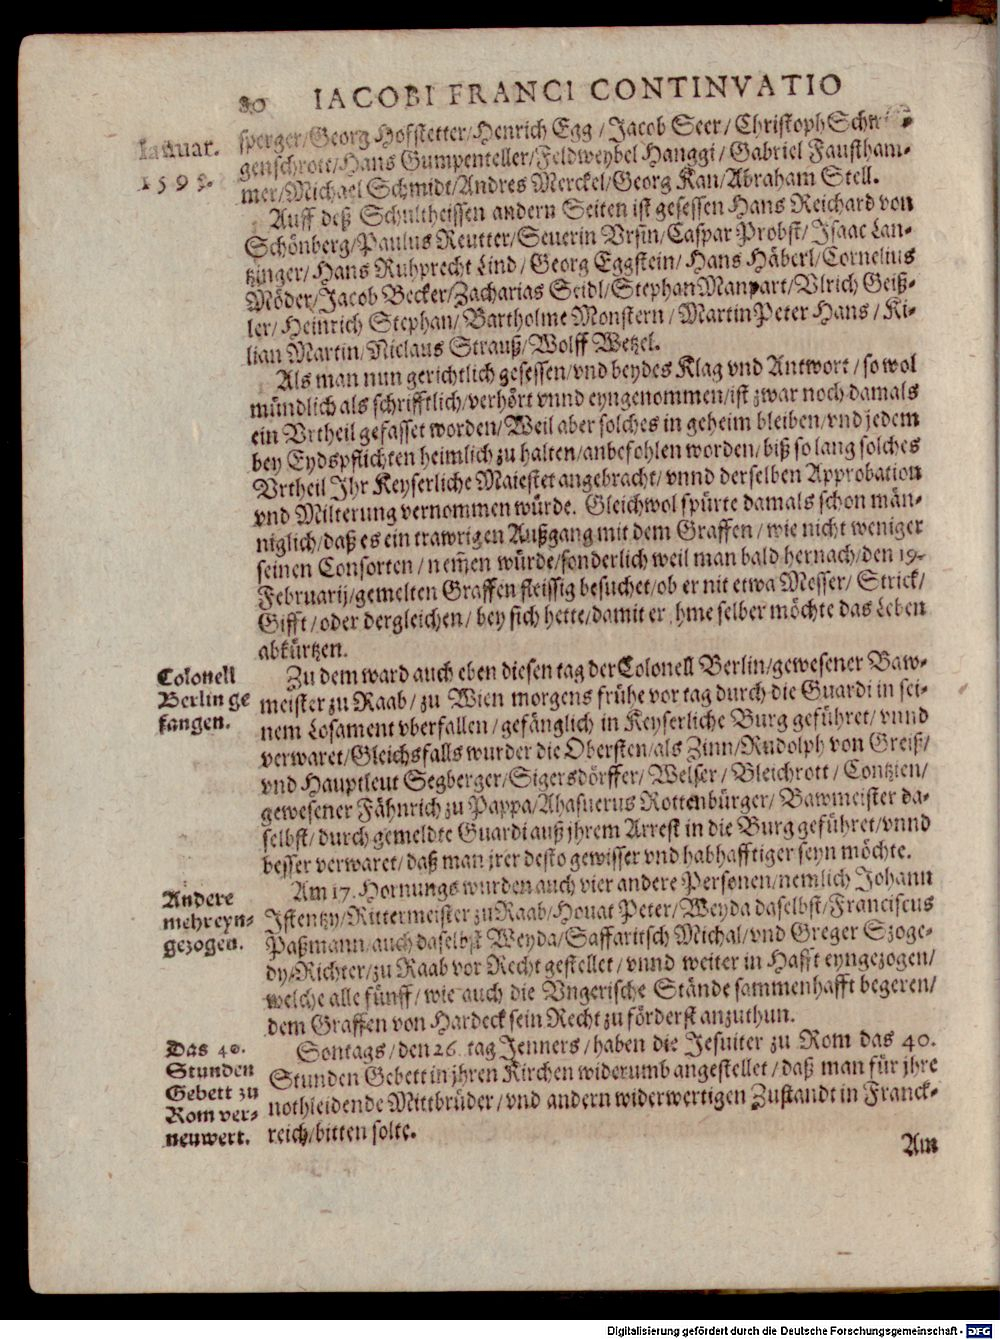 80 IACOBI FRANCI CONTINVATIO
Ianuar.
1595.
sperger/Georg Hofstetter/Henrich Egg / Jacob Seer/ Christoph
genschrott/Hans Gumpenteller/Feldweybel Hanggi / Gabriel Faustham-
mer/Michael Schmidt/Andres Merckel/Georg Kan/Abraham Stell.
Auff deß Schultheissen andern Seiten ist gesessen Hans Reichard von
Schönberg/Paulus Reutter/Seuerin Vrsin/Caspar Probst/ Isaac Lan-
tzinger/Hans Ruhprecht Lind / Georg Eggstein/ Hans Häberl/Cornelius
Möder/Jacob Becker/Zacharias Seidl/Stephan Manpart/Vlrich Geiß-
ler/ Heinrich Stephan/ Bartholme Monstern / Martin Peter Hans / Ki-
lian Martin/Niclaus Strauß/Wolff Wetzel.
Als man nun gerichtlich gesessen/vnd beydes Klag vnd Antwort / so wol
mündlich als schrifftlich/verhört vnnd eyngenommen/ist zwar noch damals
ein Vrtheil gefasset worden/ Weil aber solches in geheim bleiben/vnd jedem
bey Eydspflichten heimlich zu halten/anbefohlen worden/ biß so lang solches
Vrtheil Ihr Keyserliche Maiestet angebracht/ vnnd derselben Approbation
vnd Milterung vernommen würde. Gleichwol spürte damals schon män-
niglich/daß es ein trawrigen Außgang mit dem Graffen / wie nicht weniger
seinen Consorten / nem̃en würde/sonderlich weil man bald hernach/den 19.
Februarij/gemelten Graffen fleissig besuchet/ob er nit etwa Messer/ Strick/
Gifft / oder dergleichen / bey sich hette/damit er jhme selber möchte das Leben
abkürtzen.
Colonell
Berlin ge
fangen.
Zu dem ward auch eben diesen tag der Colonell Berlin/gewesener Baw-
meister zu Raab/ zu Wien morgens frühe vor tag durch die Guardi in sei-
nem Losament vberfallen / gefänglich in Keyserliche Burg geführet/ vnnd
verwaret/Gleichsfalls wurder die Obersten/als Zinn/Rudolph von Greiß/
vnd Hauptleut Segberger/Sigersdörffer/ Welser / Bleichrott / Contzien/
gewesener Fähnrich zu Pappa/Ahasuerus Rottenbürger/ Bawmeister da-
selbst/ durch gemeldte Guardi auß jhrem Arrest in die Burg geführet/vnnd
besser verwaret/ daß man jrer desto gewisser vnd habhafftiger seyn möchte.
Andere
mehr eyn-
gezogen.
Am 17. Hornungs wurden auch vier andere Personen/nemlich Johann
Istentzy/Rittermeister zu Raab/Houat Peter/Weyda daselbst/Franciscus
Paßmann/auch daselbst Weyda/Saffaritsch Michal/vnd Greger Szoge-
dy/Richter/zu Raab vor Recht gestellet / vnnd weiter in Hafft eyngezogen/
welche alle fünff / wie auch die Vngerische Stände sammenhafft begeren/
dem Graffen von Hardeck sein Recht zu förderst anzuthun.
Das 40.
Stunden
Gebett zu
Rom ver-
neuwert.
Sontags / den 26. tag Jenners / haben die Jesuiter zu Rom das 40.
Stunden Gebett in jhren Kirchen widerumb angestellet / daß man für jhre
nothleidende Mittbrüder / vnd andern widerwertigen Zustandt in Franck-
reich/bitten solte.
Am
Digitalisierung gefördert durch die Deutsche Forschungsgemeinschaft - DFG